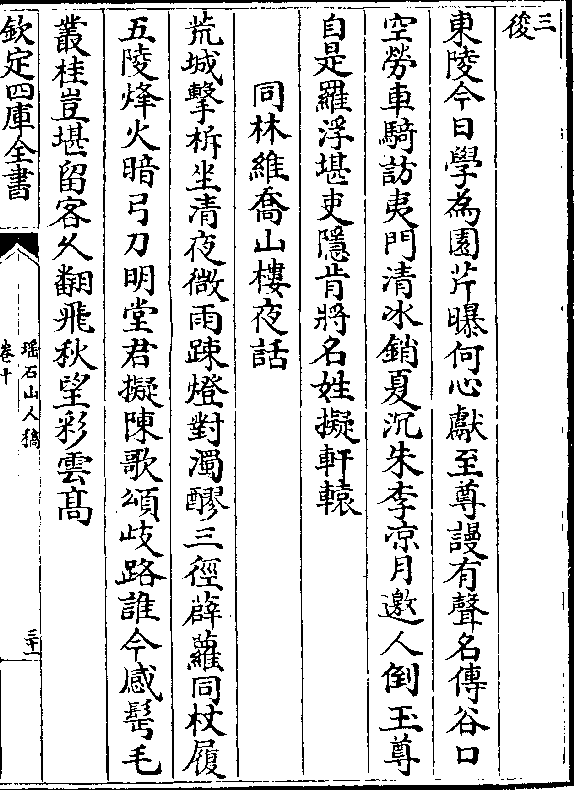 三
後
東陵今日學為園芹曝何心獻至尊謾有聲名傳谷口
空勞車騎訪夷門清冰銷夏沉朱李凉月邀人倒玉尊
自是羅浮堪吏隱肯將名姓擬軒轅
同林維喬山樓夜話
荒城擊柝坐清夜微雨踈燈對濁醪三徑薜蘿同杖履
五陵烽火暗弓刀明堂君擬陳歌頌歧路誰今感髩毛
叢桂豈堪留客久翻飛秋望彩雲髙
欽定四庫全書
瑶石山人稿
卷十
三十一